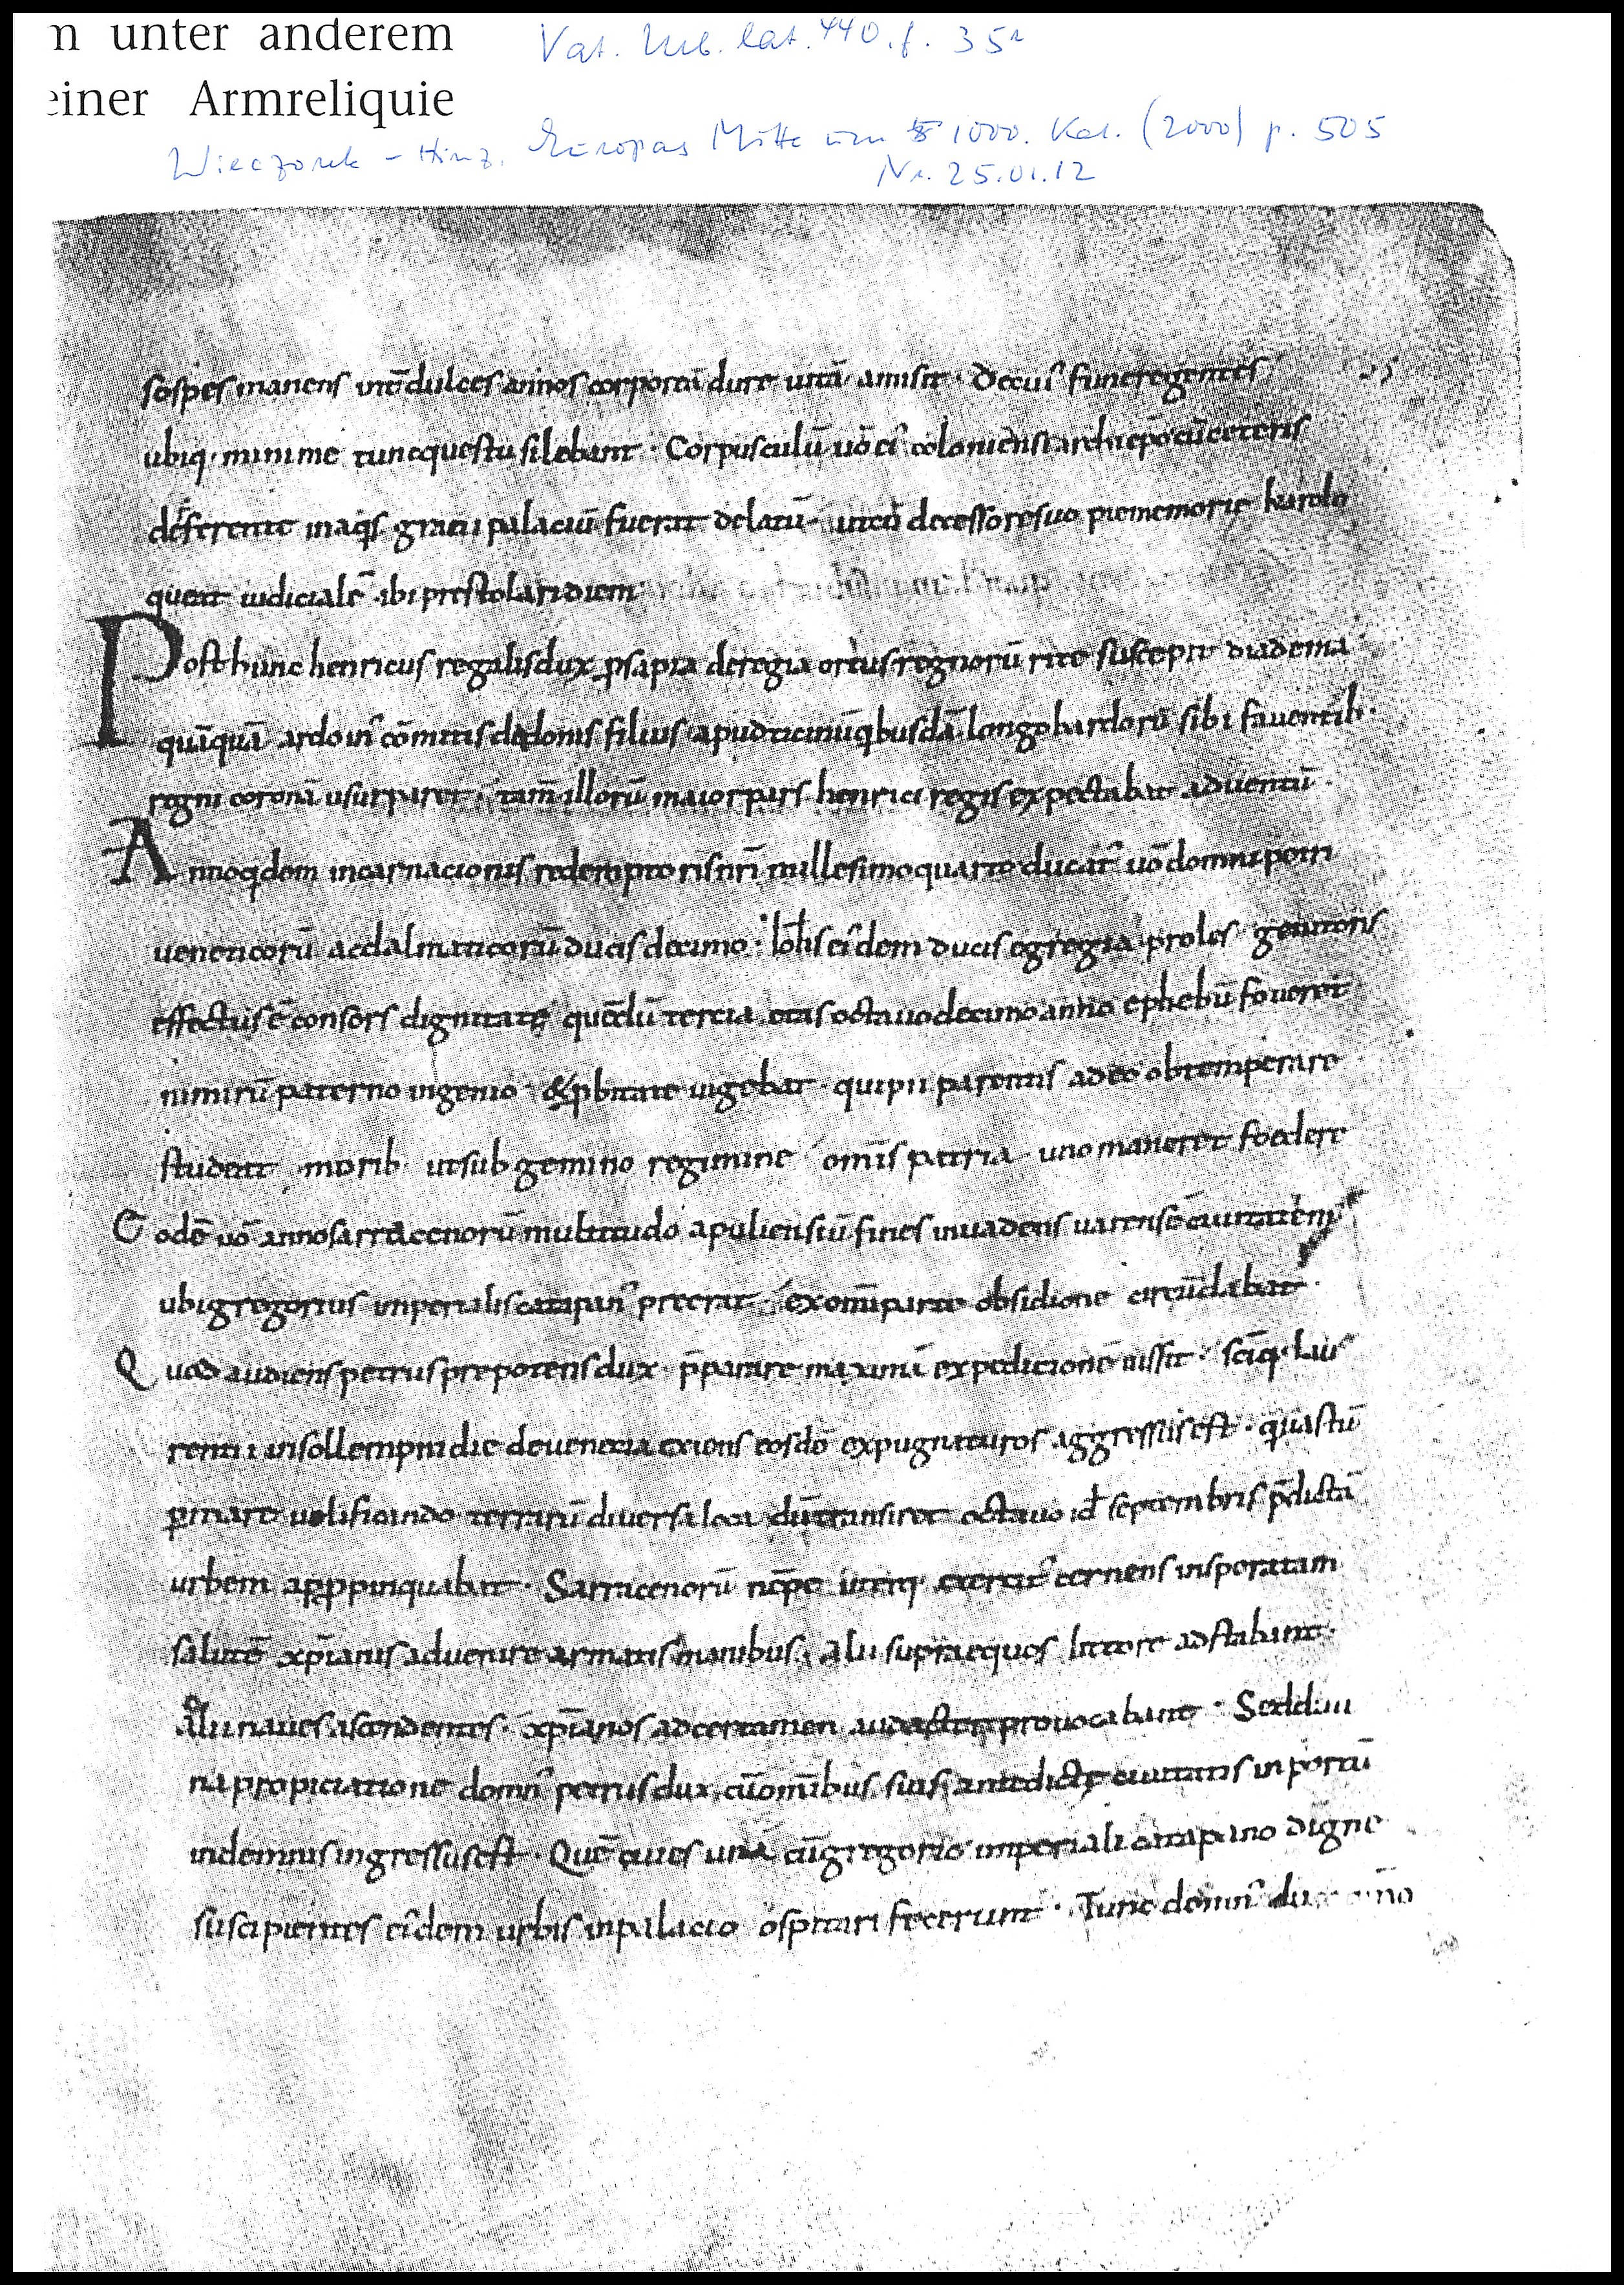 n unter anderem
einer Armreliquie
Vat. Urb. lat. 440. f. 35r
Wieczorek – Hinz, Europas Mitte um 1000. Kat. (2000) p. 505
Nr. 25.01.12
sospes manens inter dulces annos corporeā dure uitā amisit · De cuiꝰ funere gentes
ubiq; minime tunc questu silebant · Corpusculū uō eiꝰ coloniensi archiepō cū ceteris
deferente in aqͥs grani palaciū fuerat delatū · uticū decessore suo pie memorie karolo
queat iudicialē ibi prestolari diem
Post hunc henricus regalis dux ꝓsapia de regia ortus regnorū rite suscepit diadema
quāquā ardoinꝰ comitis dadonis filius apud ticinū qͥbusdā longobardorū sibi fauentib;
regni coronā usurparet · tam̄ illorū maior pars henrici regis expectabat aduentū ·
Anno qͥdem incarnacionis redemptoris nr̄i millesimo quarto ducatꝰ uō domni petri
ueneticorū ac dalmaticorū ducis decimo · Ioh̄is eiꝰdem ducis egregia proles genitoris
effectus ē consors dignitate quē dū tercia etas octauodecimo anno ephebū foueret
nimirū paterno ingenio · & ꝓbitate uigebat · qui pii parentis adeo obtemperare
studeat morib; ut sub gemino regimine om̄is patria uno maneret foedere
Eodē uō anno sarracenorū multitudo apuliensiū fines inuadens uarensē ciuitatem
ubi gregorius imperialis catapanꝰ preerat · ex om̄i parte obsidione circūdabat ·
Quod audiens petrus prepotens dux · p̄parare maximā expedicionē iussit · sc̄iq; lau
rentii in sollempni die de uenetia exiens eosdē expugnaturos aggressus est · qͥ astū
ꝑ mare uelificando terrarū diuersa loca dū transiret octauo id septembris p̄dictā
urbem apꝓpinquabat · Sarracenorū nēpe exercitꝰ cernens insperatam
salutē xp̄ianis aduenire armatis manibus · alii supra equos littore adstabant ·
alii naues ascendentes · xp̄ianos ad certamen prouocabant · Sed diui
na propiciatione domnꝰ petrus dux cū om̄ibus suis antedictę ciuitatis in portū
indemnis ingressus est · Quē ciues unā cū gregorio imperiali catapano digne
suscipientes eiꝰdem urbis in palacio ospitari fecerunt · Tunc domnꝰ